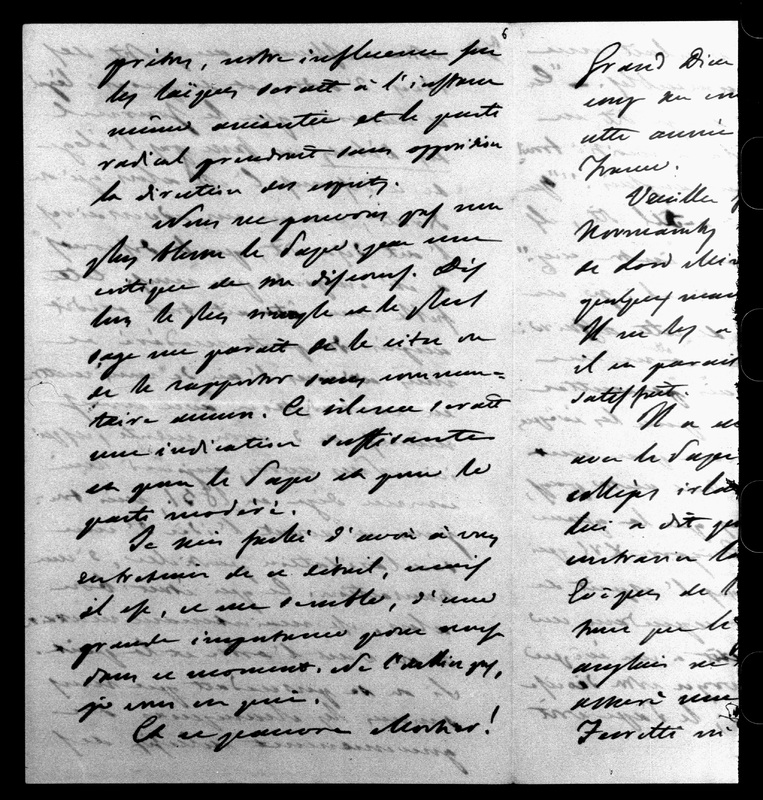 6
prêtres, notre influence sur
les laïques serait à l'instant
même anéantie et le parti
radical prendrait sans opposition
la direction des esprits.
Nous ne pouvons pas non
plus blâmer le Pape, par une
critique de son discours. Dès
lors le plus simple et le plus
sage me paraît de le citer ou
de le rapporter sans commen=
taire aucun. Ce silence serait
une indication suffisante
et pour le Pape et pour le
parti modéré.
Je suis fâché d'avoir à vous
entretenir de ce détail, mais
il est, ce me semble, d'une
grande importance pour nous
dans ce moment. Ne l'oubliez pas,
je vous en prie.
Et ce pauvre
Grand Dieu
cette année
France.
Normanby
de Lord Min
quelques
Il ne les a
il en parait
satisfait.
Il a
avec le Pape
collèges irla
lui a dit
Evêques de
que le
anglais ne
assuré
Ferretti